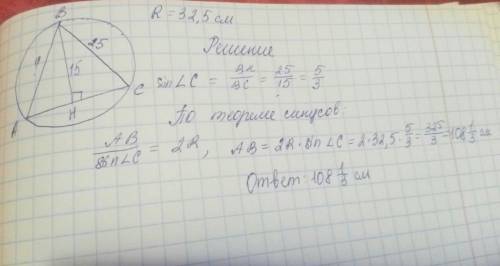 R = 32,5 см
B
Решение
25
?
15
sin∠C = BH/BC = 25/15 = 5/3
C
A
H
По теореме синусов:
AB/sin∠C = 2R, AB = 2R · sin∠C = 2·32,5·5/3 = 325/3 = 108 1/3 см
Ответ: 108 1/3 см